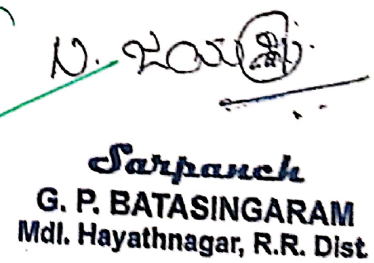 Sarpanch
G. P. BATASINGARAM
Mdl. Hayathnagar, R.R. Dist